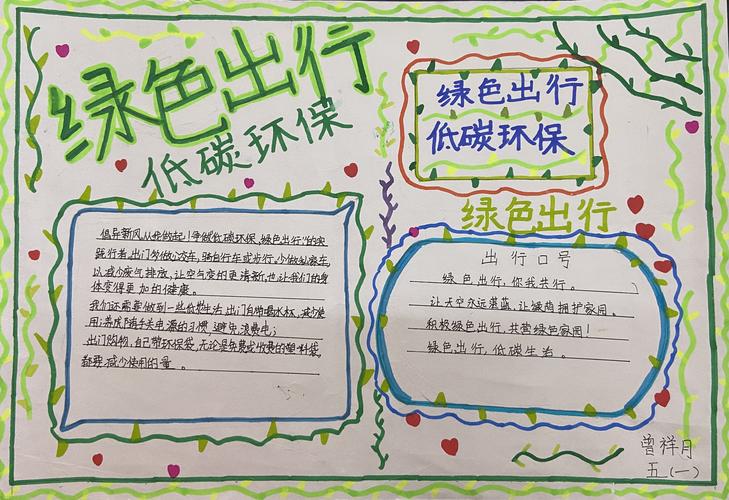 绿色出行
低碳环保
绿色出行
低碳环保
倡导新风从我做起！争做"低碳环保,绿色出行"的实
践行者,出门多做公交车,骑自行车或步行,少做私家车
以减少废气排放,让空气变的更清新,也让我们的身
体变得更加的健康。
我们还需要做到一些低碳生活,出门自带喝水杯,减少使
用;养成随手关电源的习惯,避免浪费电;
出门购物,自己带环保袋,无论是免费或收费的塑料袋,
都要减少使用的量。
绿色出行
出行口号
绿色出行,你我共行。
让天空永远湛蓝,让城市拥护家园。
积极绿色出行,共营绿色家园!
绿色出行,低碳生活。
曾祥月
五(一)